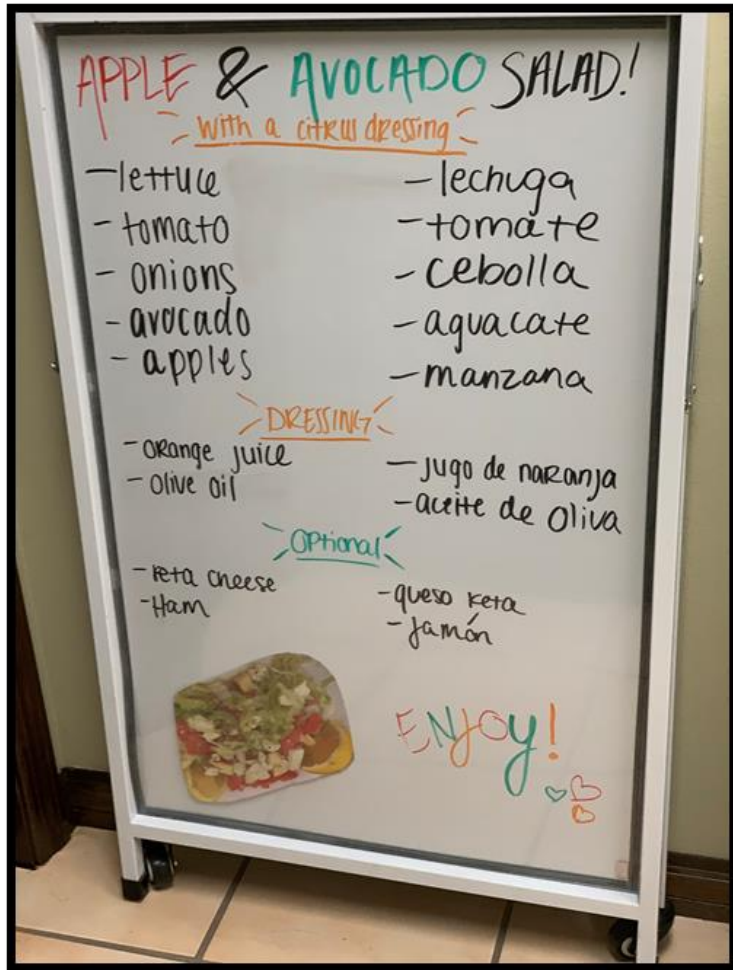 APPLE & AVOCADO SALAD!
With a citrus dressing
- lettuce
- tomato
- onions
- avocado
- apples
- lechuga
- tomate
- cebolla
- aguacate
- manzana
DRESSING
- orange juice
- olive oil
- jugo de naranja
- aceite de oliva
Optional
- feta cheese
- Ham
- queso feta
- Jamón
ENJOY!